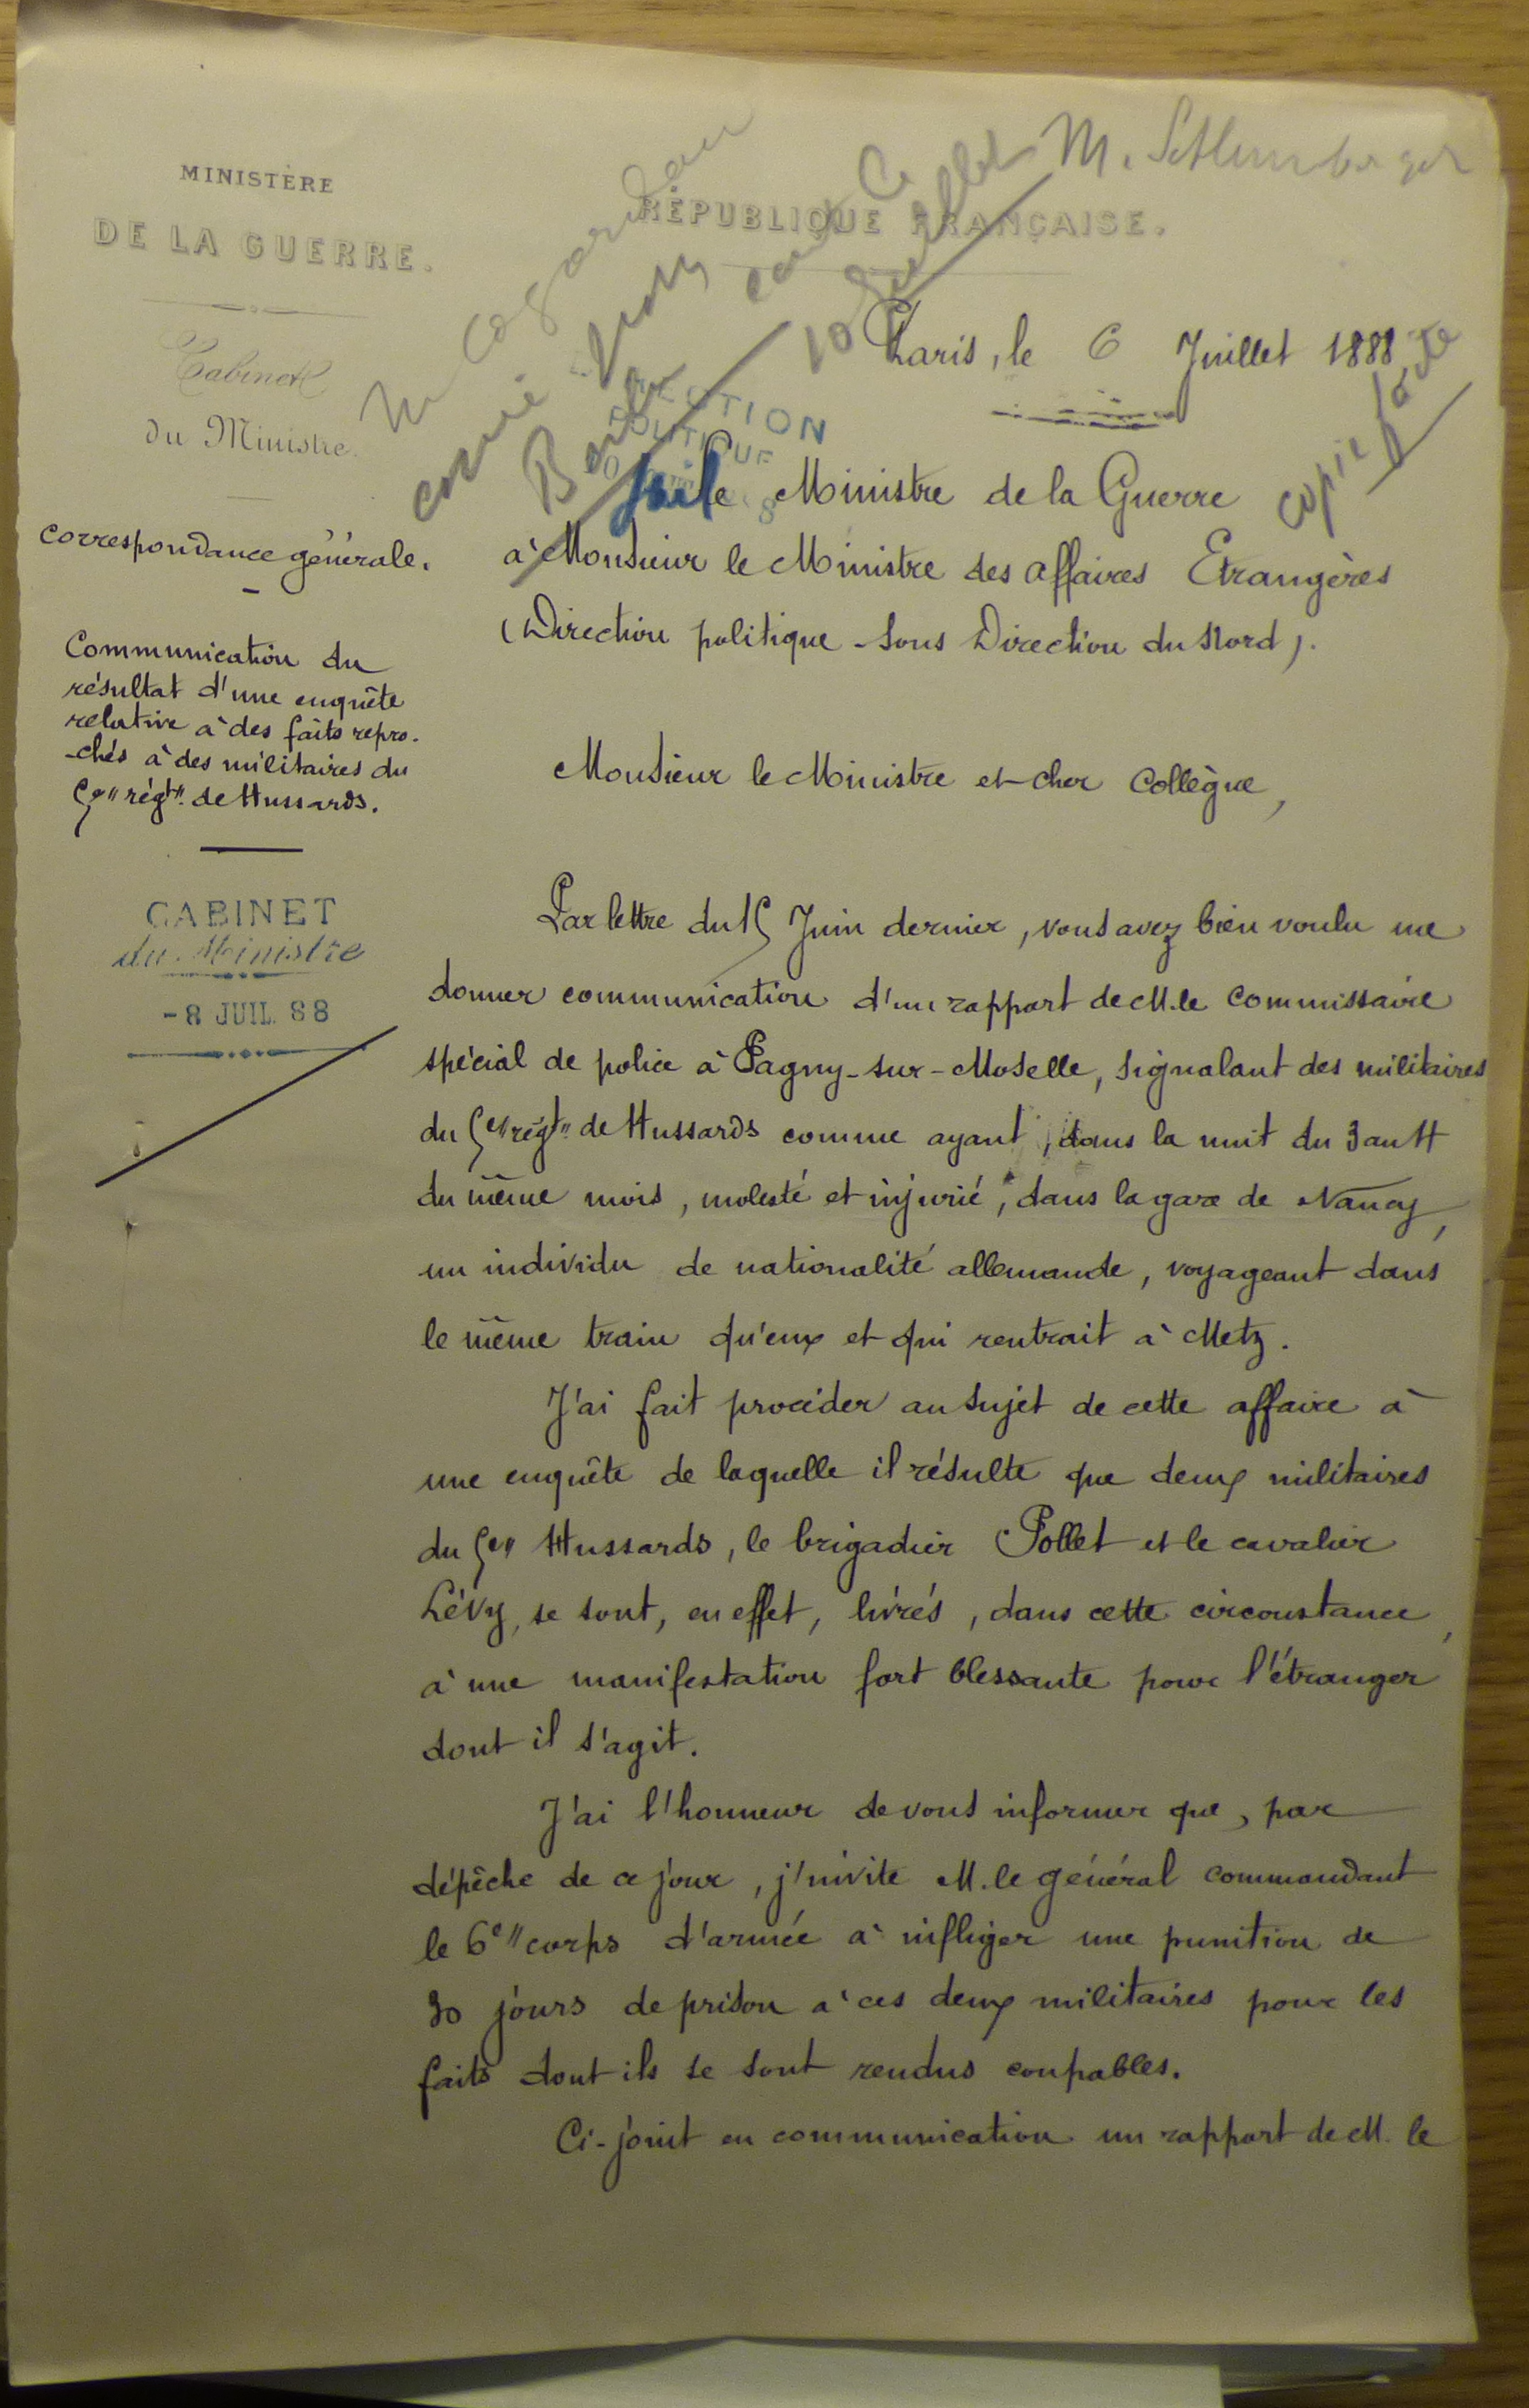 MINISTÈRE
DE LA GUERRE.
Cabinet
du Ministre.
Correspondance générale.
Communication du
résultat d'une enquête
relative à des faits repro-
-chés à des militaires du
5e régt de Hussards.
CABINET
du Ministre
-8 JUIL. 88
M. Schlumberger
RÉPUBLIQUE FRANÇAISE.
10 Juillet
copie faite
Paris, le 6 Juillet 1888
DIRECTION
POLITIQUE
Le Ministre de la Guerre
à Monsieur le Ministre des Affaires Etrangères
(Direction politique - Sous Direction du Nord).
Monsieur le Ministre et cher Collègue,
Par lettre du 15 Juin dernier, vous avez bien voulu me
donner communication d'un rapport de M. le Commissaire
spécial de police à Pagny-sur-Moselle, signalant des militaires
du 5e régt de Hussards comme ayant, dans la nuit du 3 au 4
du même mois, molesté et injurié, dans la gare de Nancy,
un individu de nationalité allemande, voyageant dans
le même train qu'eux et qui rentrait à Metz.
J'ai fait procéder au sujet de cette affaire à
une enquête de laquelle il résulte que deux militaires
du 5e Hussards, le brigadier Pollet et le cavalier
Lévy, se sont, en effet, livrés, dans cette circonstance,
à une manifestation fort blessante pour l'étranger
dont il s'agit.
J'ai l'honneur de vous informer que, par
dépêche de ce jour, j'invite M. le général commandant
le 6e corps d'armée à infliger une punition de
30 jours de prison à ces deux militaires pour les
faits dont ils se sont rendus coupables.
Ci-joint en communication un rapport de M. le